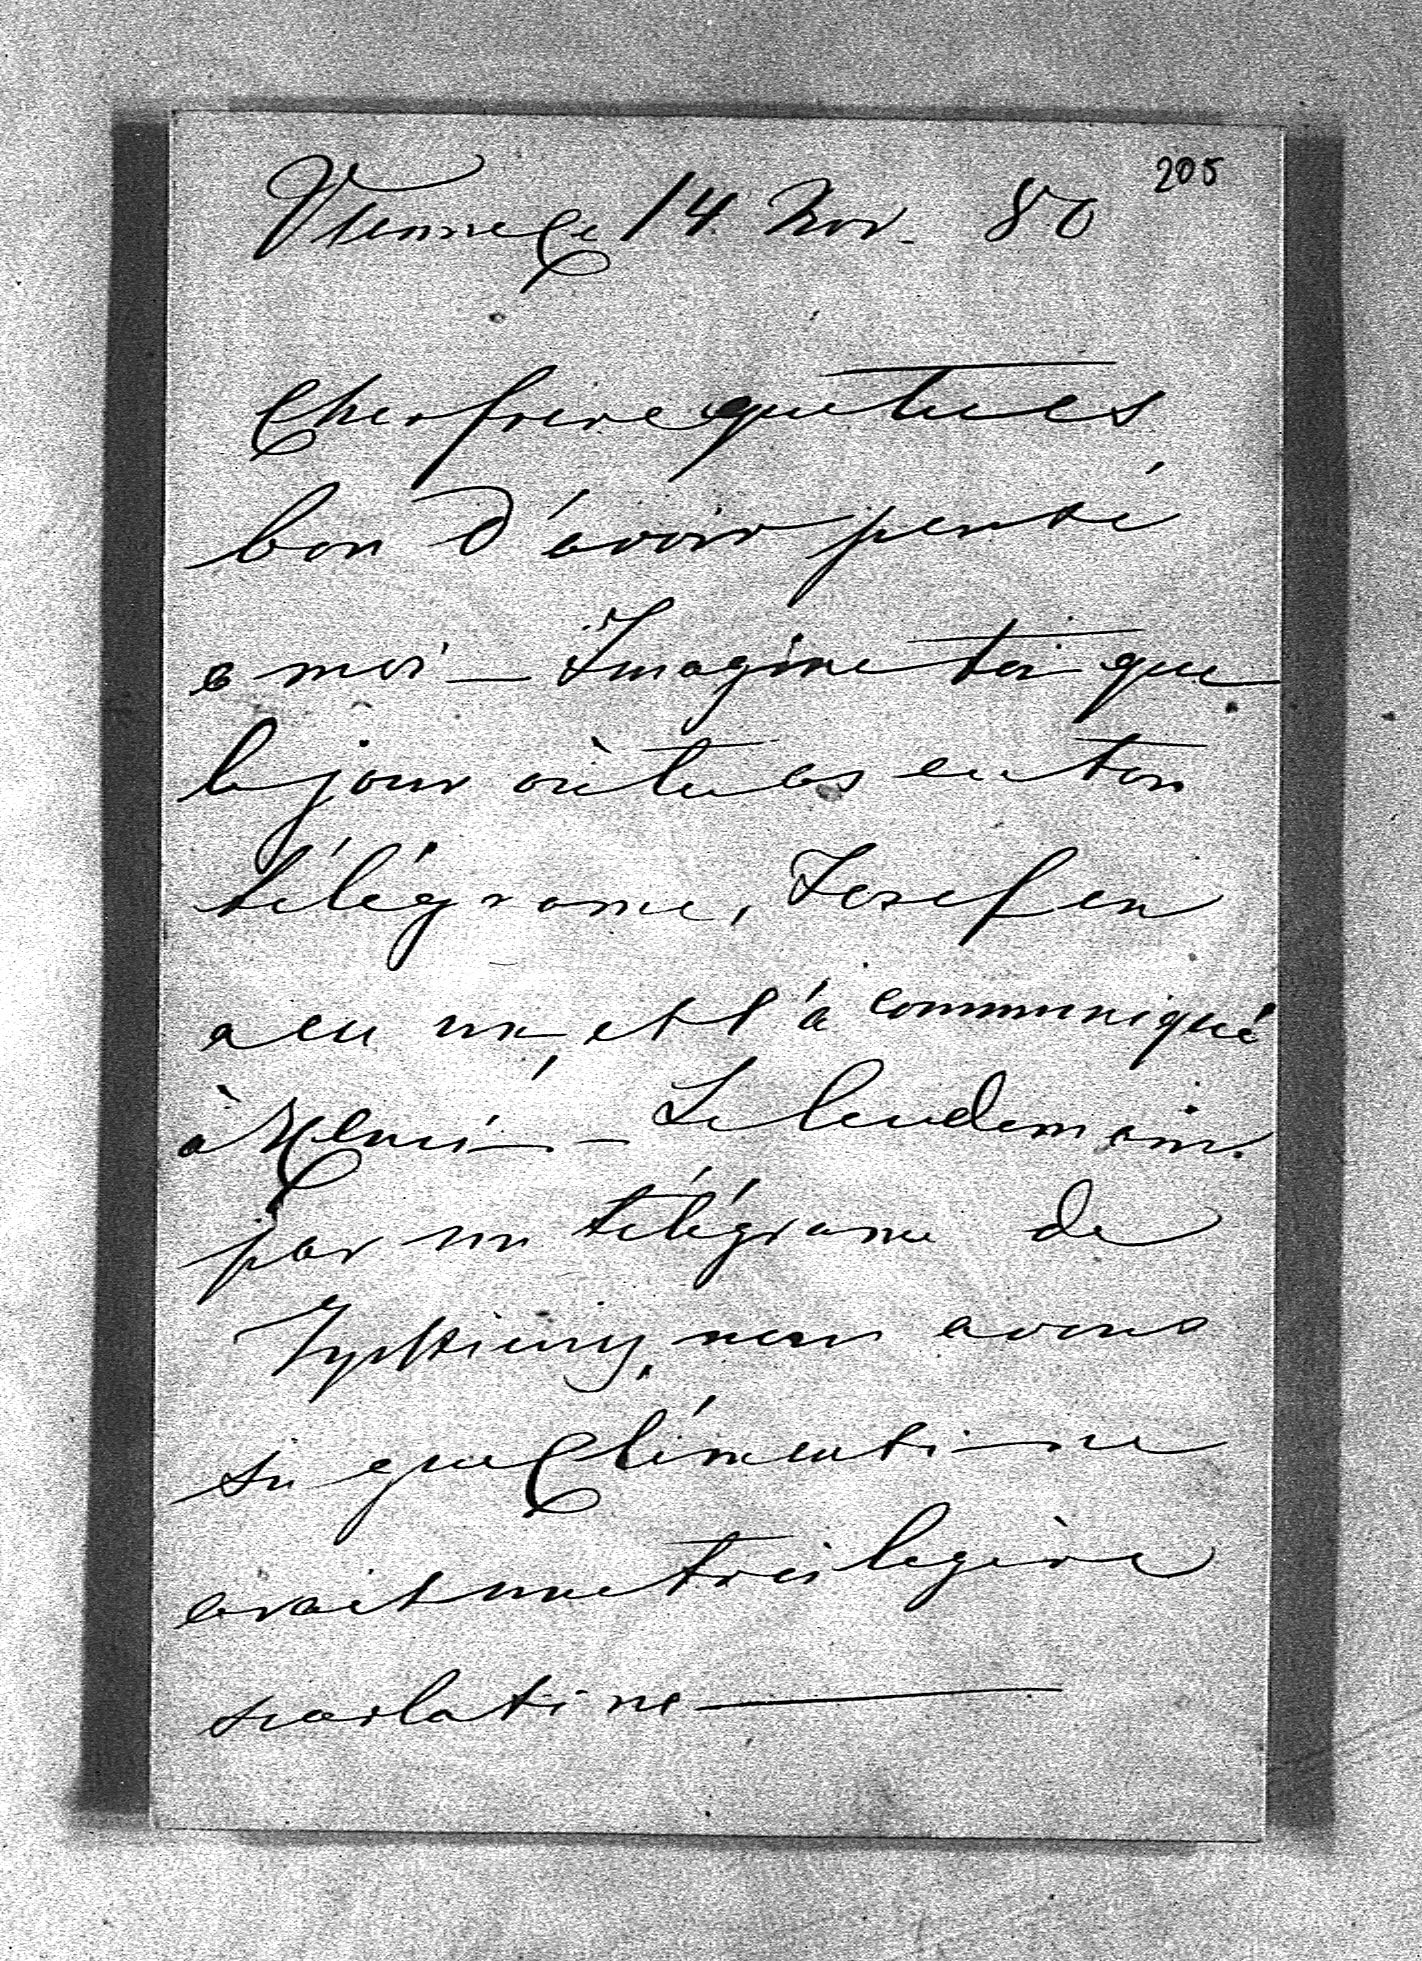 205
Vienne Ce 14. Nov. 80
Cher frere que tu es
bon d'avoir pensé
a moi – Imagine toi que
le jour où tu as eu ton
télégrame, Josef en
a eu un, et l'à communiqué
à – Le lendemain
par un télégrame de
nous avons
su que Clémentine
avait une très legère
scarlatine